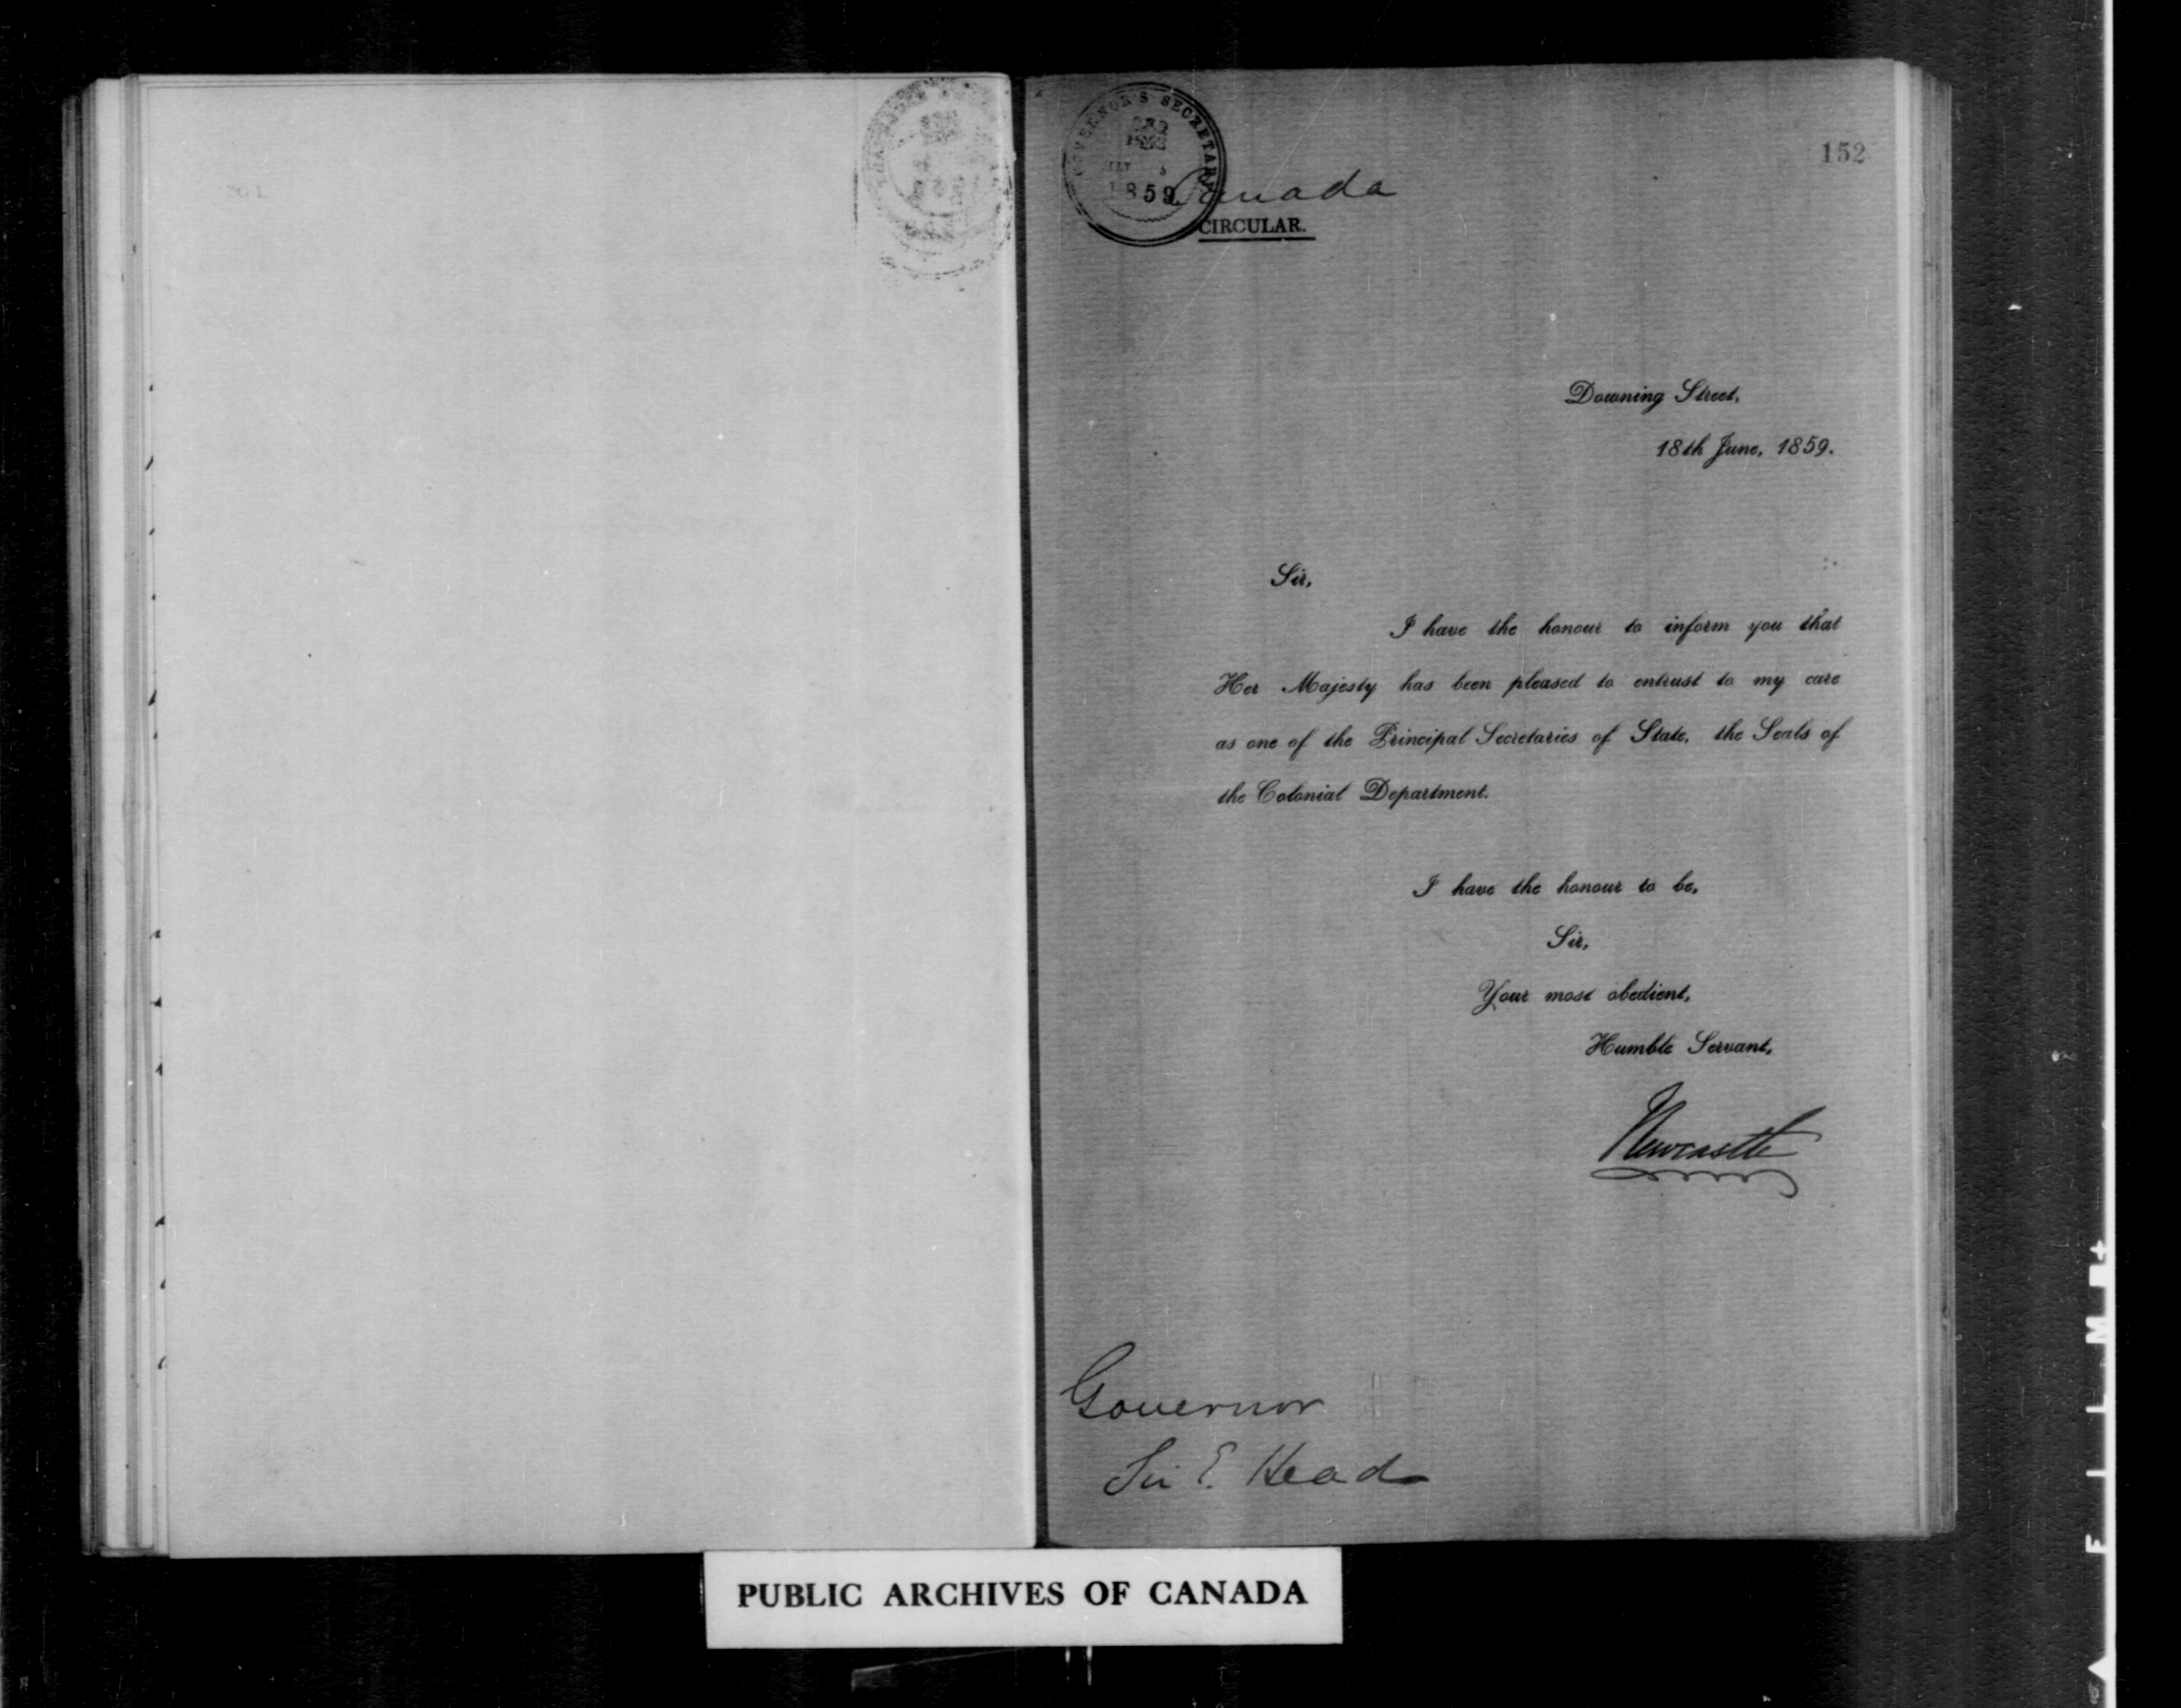 GOVERNOR'S SECRETARY
1859
152
Canada
CIRCULAR.
Downing Street,
18th June, 1859.
Sir,
I have the honour to inform you that
Her Majesty has been pleased to entrust to my care
as one of the Principal Secretaries of State, the Seals of
the Colonial Department.
I have the honour to be,
Sir,
Your most obedient,
Humble Servant,
Newcastle
Governor
Sir E. Head
PUBLIC ARCHIVES OF CANADA